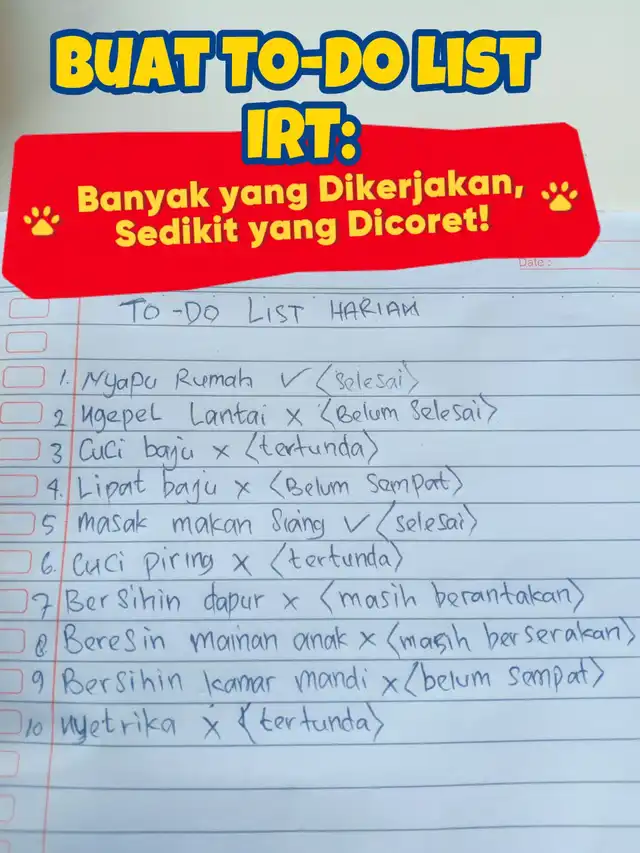 BUAT TO-DO LIST
IRT:
Banyak yang Dikerjakan,
Sedikit yang Dicoret!
Date :
TO-DO LIST HARIAN
1. Nyapu Rumah ✓ <Selesai>
2 Ngepel Lantai x <Belum Selesai>
3 Cuci baju x <tertunda>
4. Lipat baju x <Belum Sempat>
5 masak makan Siang ✓ <selesai>
6. Cuci piring x <tertunda>
7 Bersihin dapur x <masih berantakan>
8 Beresin mainan anak x <masih berserakan>
9 Bersihin kamar mandi x <belum sempat>
10 nyetrika x <tertunda>